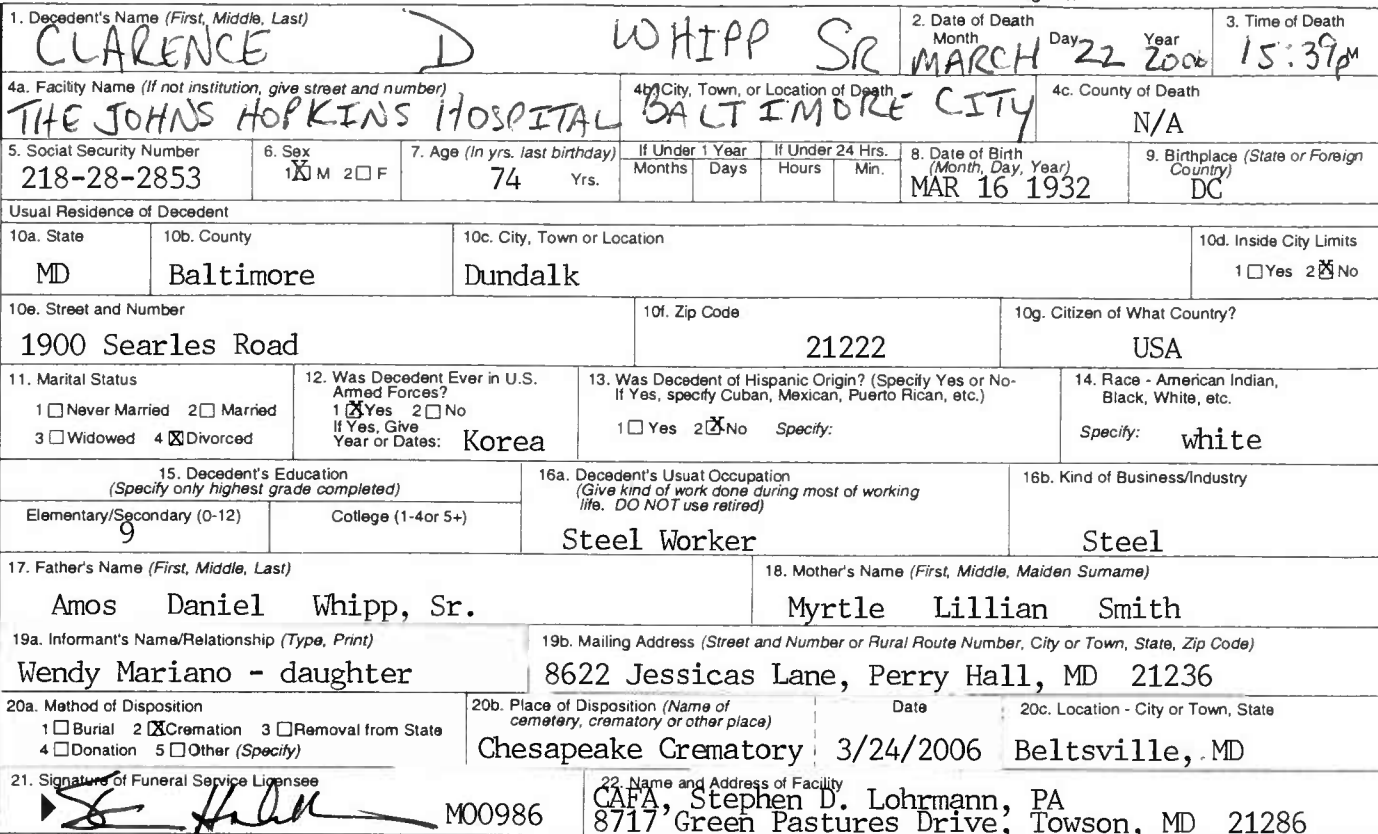 1. Decedent's Name (First, Middle, Last)
CLARENCE D WHIPP SR
2. Date of Death
Month Day Year
MARCH 22 2006
3. Time of Death
15:39PM
4a. Facility Name (If not institution, give street and number)
THE JOHNS HOPKINS HOSPITAL
4b. City, Town, or Location of Death
BALTIMORE CITY
4c. County of Death
N/A
5. Social Security Number
218-28-2853
6. Sex
1 X M 2 □ F
7. Age (In yrs. last birthday)
74 Yrs.
If Under 1 Year
Months Days
If Under 24 Hrs.
Hours Min.
8. Date of Birth
(Month, Day, Year)
MAR 16 1932
9. Birthplace (State or Foreign
Country)
DC
Usual Residence of Decedent
10a. State
MD
10b. County
Baltimore
10c. City, Town or Location
Dundalk
10d. Inside City Limits
1 □ Yes 2 X No
10e. Street and Number
1900 Searles Road
10f. Zip Code
21222
10g. Citizen of What Country?
USA
11. Marital Status
1 □ Never Married 2 □ Married
3 □ Widowed 4 X Divorced
12. Was Decedent Ever in U.S.
Armed Forces?
1 X Yes 2 □ No
If Yes, Give
Year or Dates: Korea
13. Was Decedent of Hispanic Origin? (Specify Yes or No-
If Yes, specify Cuban, Mexican, Puerto Rican, etc.)
1 □ Yes 2 X No Specify:
14. Race - American Indian,
Black, White, etc.
Specify: white
15. Decedent's Education
(Specify only highest grade completed)
Elementary/Secondary (0-12)
9
College (1-4or 5+)
16a. Decedent's Usual Occupation
(Give kind of work done during most of working
life. DO NOT use retired)
Steel Worker
16b. Kind of Business/Industry
Steel
17. Father's Name (First, Middle, Last)
Amos Daniel Whipp, Sr.
18. Mother's Name (First, Middle, Maiden Surname)
Myrtle Lillian Smith
19a. Informant's Name/Relationship (Type, Print)
Wendy Mariano - daughter
19b. Mailing Address (Street and Number or Rural Route Number, City or Town, State, Zip Code)
8622 Jessicas Lane, Perry Hall, MD 21236
20a. Method of Disposition
1 □ Burial 2 X Cremation 3 □ Removal from State
4 □ Donation 5 □ Other (Specify)
20b. Place of Disposition (Name of
cemetery, crematory or other place)
Chesapeake Crematory
Date
3/24/2006
20c. Location - City or Town, State
Beltsville, MD
21. Signature of Funeral Service Licensee
M00986
22. Name and Address of Facility
CAFA, Stephen D. Lohrmann, PA
8717 Green Pastures Drive, Towson, MD 21286